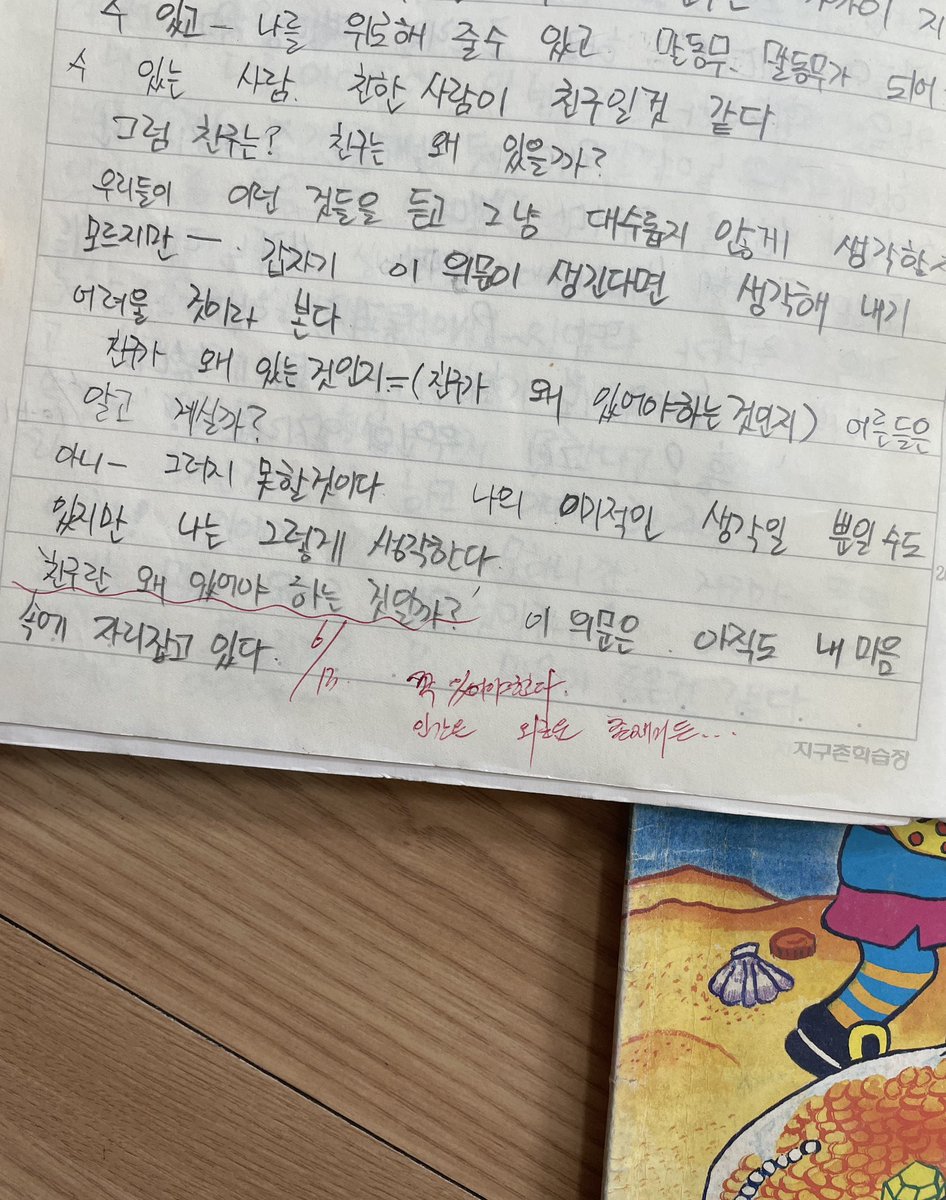 수 있고- 나를 위로해 줄수 있고 말동무. 말동무가 되어
수 있는 사람. 친한 사람이 친구일것 같다
그럼 친구는? 친구는 왜 있을까?
우리들이 이런 것들을 듣고 그냥 대수롭지 않게 생각할
모르지만 -. 갑자기 이 의문이 생긴다면 생각해 내기
어려울 것이라 본다
친구가 왜 있는것인지=(친구가 왜 있어야하는것인지) 어른들은
알고 계실까?
아니- 그러지 못할것이다. 나의 이기적인 생각일 뿐일 수도
있지만 나는 그렇게 생각한다.
'친구란 왜 있어야 하는 것일까?' 이 의문은 아직도 내 마음
속에 자리잡고 있다.
6/13 꼭 있어야한다.
인간은 외로운 존재거든...
지구촌학습장